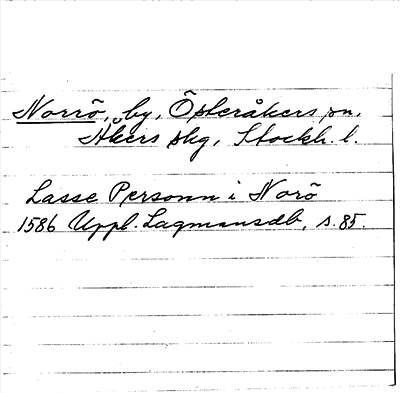 Norrö, by, Österåkers sn,
Åkers skg, Stockh. l.
Lasse Personn i Norö
1586 Uppl. Lagmansdb, s. 85.